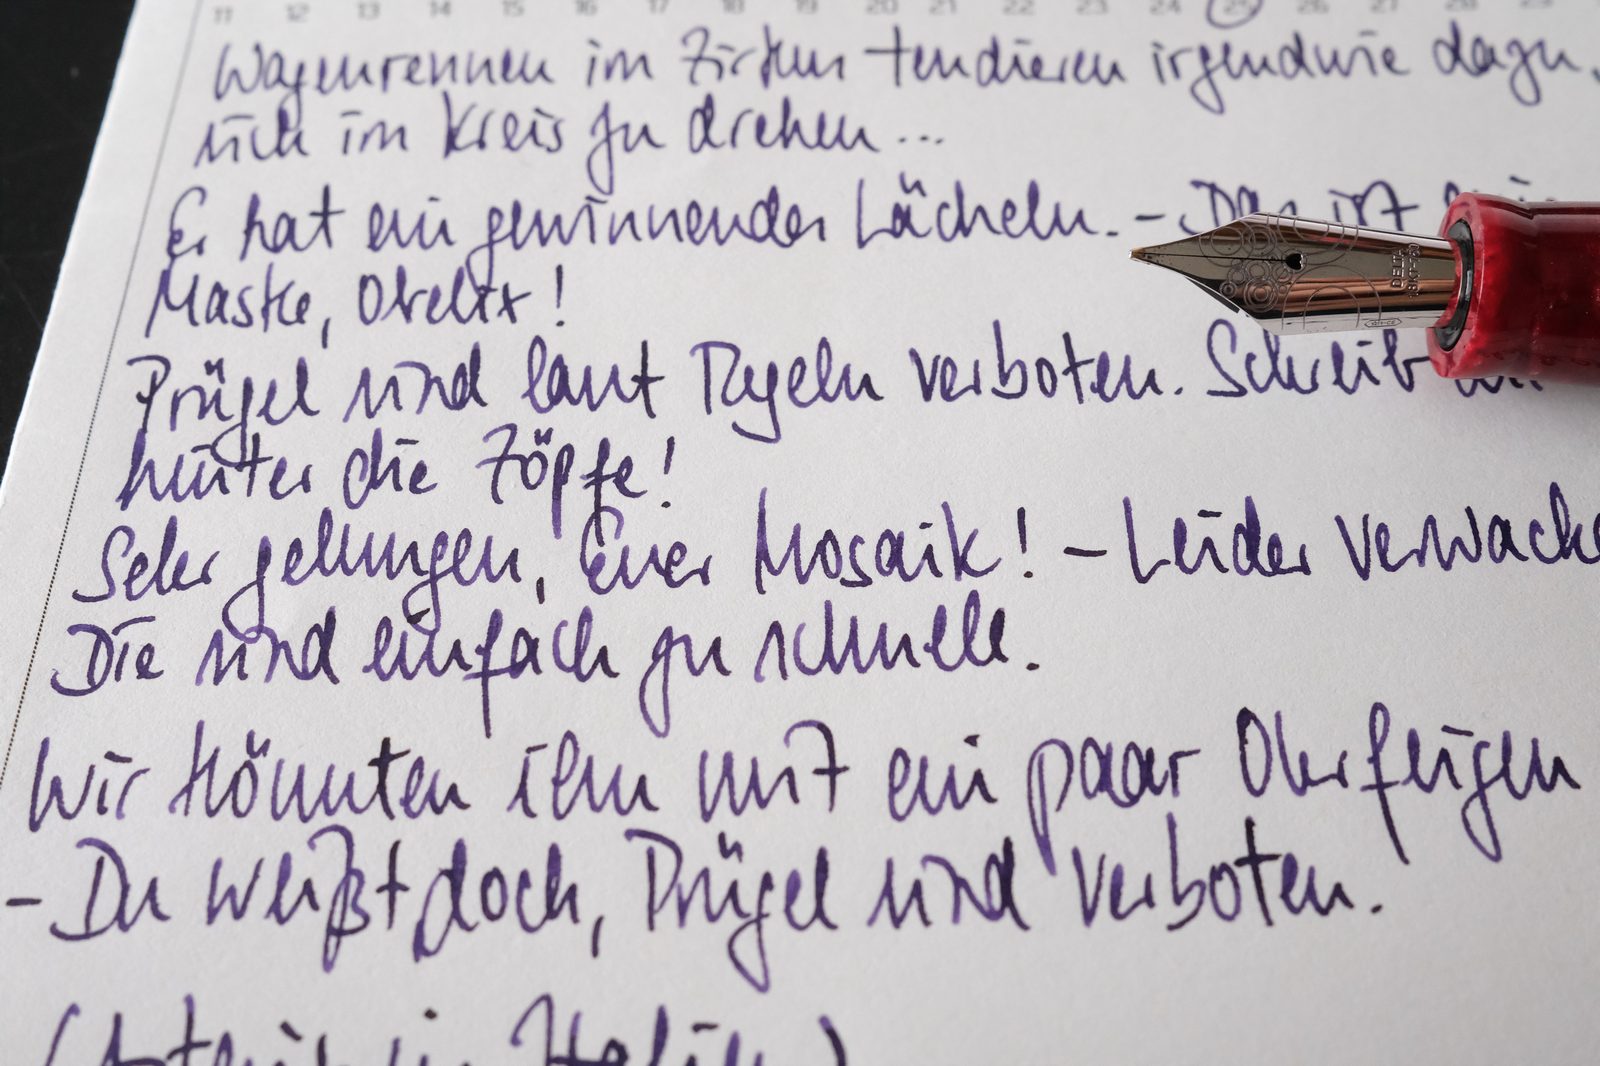 11 12 13 14 15 16 17 18 19 20 21 22 23 24 25 26 27 28 29
Wagenrennen im Zirkus tendieren irgendwie dazu,
sich im Kreis zu drehen...
Er hat ein gewinnendes Lächeln. - Das ist
Maske, Obelix!
Prügel sind laut Regeln verboten. Schreib
hinter die Zöpfe!
Sehr gelungen, Euer Mosaik! - Leider verwack
Die sind einfach zu schnell.
Wir könnten ihn mit ein paar Ohrfeigen
- Du weißt doch, Prügel sind verboten.
(Asterix in Italien)
DELTA